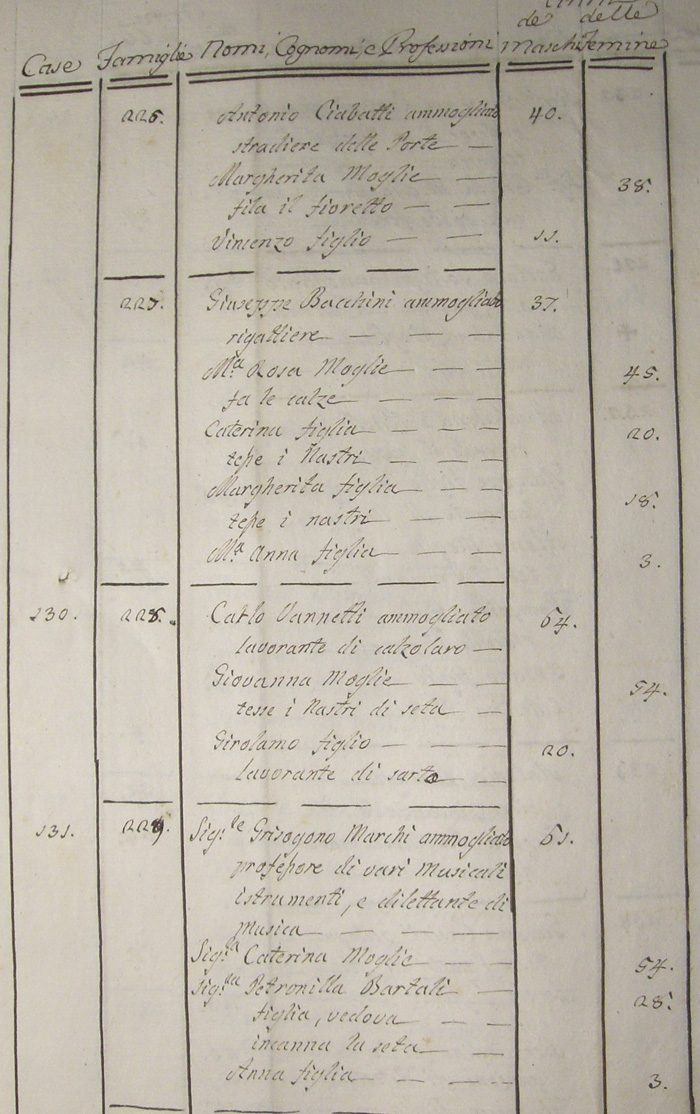 Anni
de' delle
Case Famiglie Nomi, Cognomi, e Professioni Maschi Femine
226. Antonio Ciabatti ammogliato 40.
stradiere delle Porte
Margherita Moglie 38.
fila il fioretto
Vincenzo figlio 11.
227. Giuseppe Bacchini ammogliato 37.
rigattiere
M.a Rosa Moglie 45.
fa le calze
Caterina figlia 20.
tesse i Nastri
Margherita figlia 18.
tesse i nastri
M.a Anna figlia 3.
130. 228. Carlo Vannetti ammogliato 64.
lavorante di calzolaro
Giovanna Moglie 54.
tesse i Nastri di seta
Girolamo figlio 20.
lavorante di sarto
131. 229. Sig.re Grisogono Marchi ammogliato 61.
professore di vari Musicali
istrumenti, e dilettante di
Musica
Sig.ra Caterina Moglie 54.
Sig.ra Petronilla Bartali 28.
figlia, vedova
incanna la seta
Anna figlia 3.